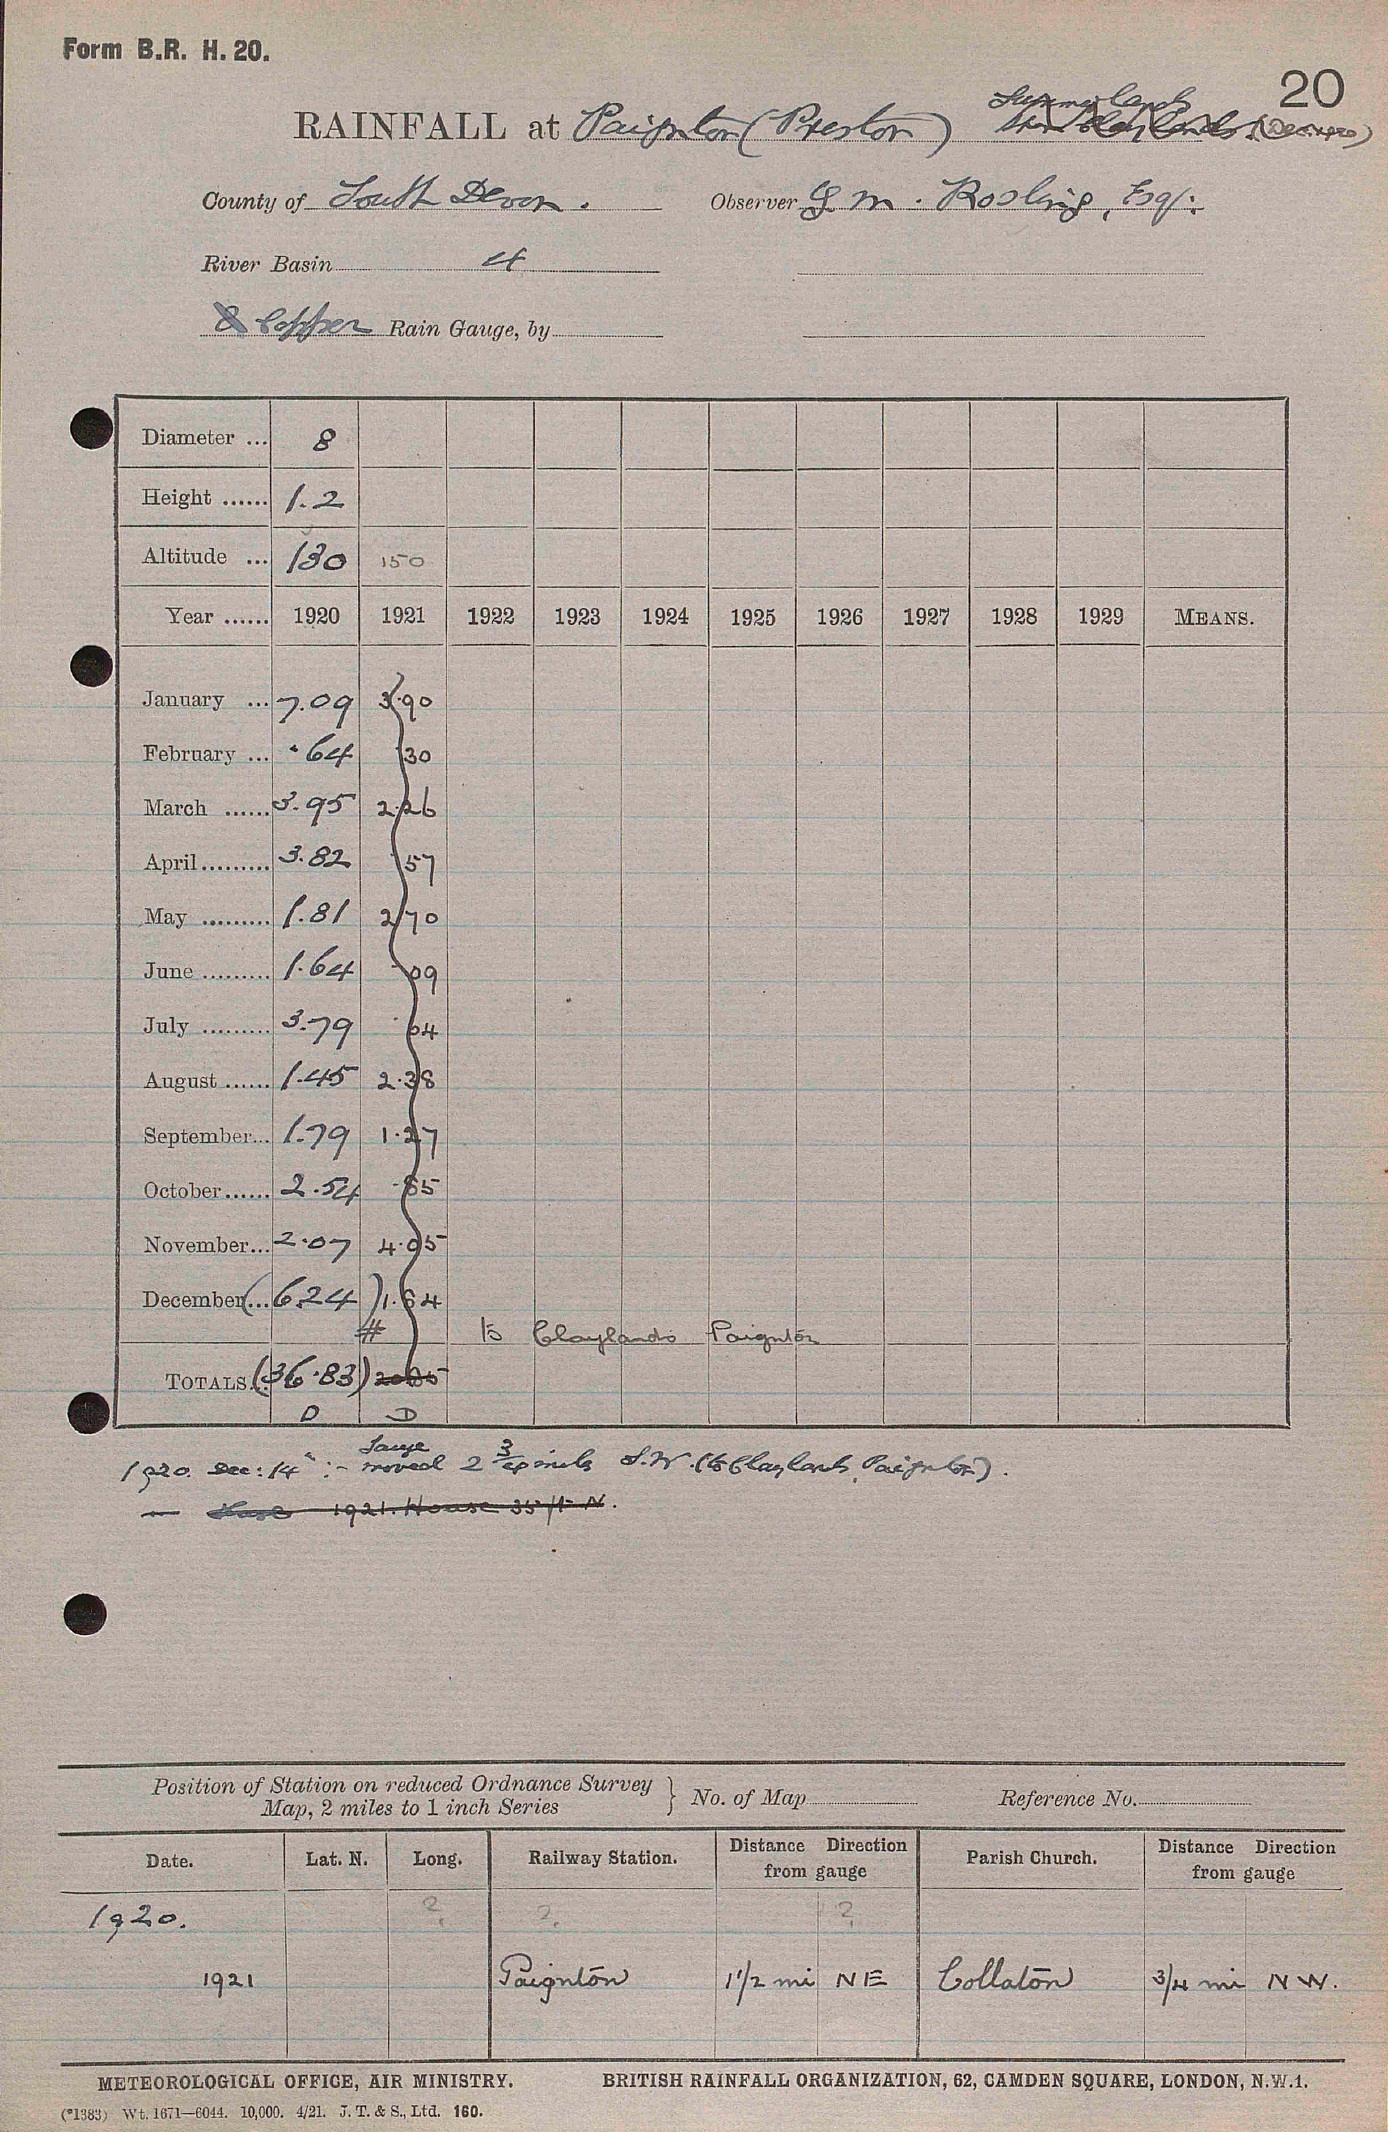 Form B.R. H. 20.
20
Summerlands
RAINFALL at Paignton (Preston)
County of South Devon. Observer G. M. Rosling, Esq.
River Basin 4
8 Copper Rain Gauge, by
Diameter ... 8
Height ...... 1.2
Altitude ... 130 150
Year ...... 1920 1921 1922 1923 1924 1925 1926 1927 1928 1929 MEANS.
January ... 7.09 3.90
February ... .64 .30
March ...... 3.95 2.26
April......... 3.82 .57
May ......... 1.81 2.70
June ......... 1.64 .09
July ......... 3.79 .64
August ...... 1.45 2.38
September... 1.79 1.27
October...... 2.54 .85
November... 2.07 4.05
December... (6.24) 1.64
# to Claylands Paignton
TOTALS... (36.83) 20.65
D D
Gauge
1920. Dec: 14th :- moved 2 3/4 miles S.W. (to Claylands, Paignton).
— 1921. House 35 ft N.
Position of Station on reduced Ordnance Survey } No. of Map Reference No.
Map, 2 miles to 1 inch Series
Date. Lat. N. Long. Railway Station. Distance Direction from gauge Parish Church. Distance Direction from gauge
1920. ? ? ?
1921 Paignton 1 1/2 mi NE Collaton 3/4 mi NW.
METEOROLOGICAL OFFICE, AIR MINISTRY. BRITISH RAINFALL ORGANIZATION, 62, CAMDEN SQUARE, LONDON, N.W.1.
(*1383) Wt. 1671—6044. 10,000. 4/21. J. T. & S., Ltd. 160.